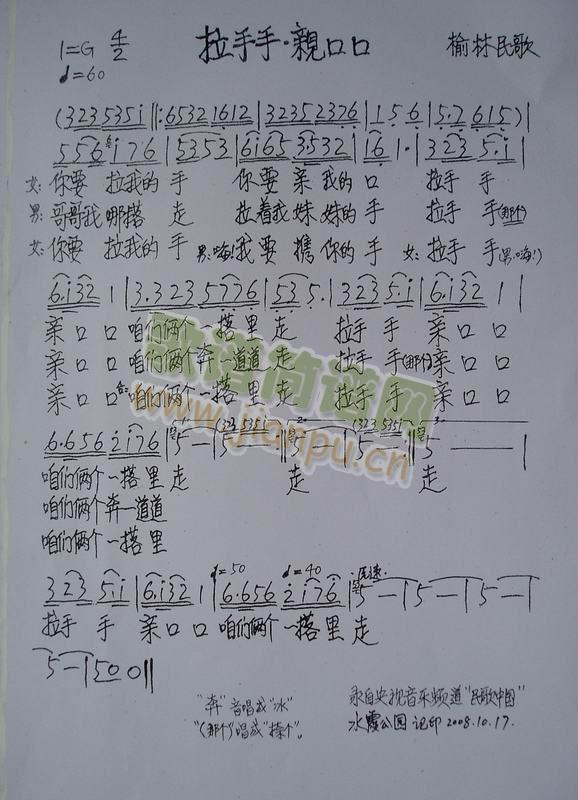 1=G 4/2 拉手手·親口口 榆林民歌
♩=60
(323 535i ‖: 65321612 | 32352376 | 1 5 6 | 5.7 615) |
556 i76 | 5353 | 6i65 3532 | 16 1· | 323 5.i |
女: 你要 拉我的 手 你要 亲 我的 口 拉手 手
男: 哥哥我 哪搭 走 拉着我 妹妹的 手 拉手 手(那个)
女: 你要 拉我的 手 男:(嗨!)我要 携 你的 手 女: 拉手 手(男:嗨!)
6.i32 1 | 3.323 5776 | 53 5. | 323 5.i | 6.i32 1 |
亲口 口 咱们俩个 一搭里 走 拉手 手 亲口 口
亲口 口 咱们俩个奔 一道道 走 拉手 手(那个) 亲口 口
亲口 口 合:咱们俩个 一搭里 走 拉手 手 亲口 口
歌谱简谱网
www.jianpu.cn
6.656 2i76 | 5 — | 5 (323 535i) :‖ 5 — | 5 — (323 535i) :‖ 5 — |
咱们俩个 一搭里 走 走 走
咱们俩个奔一道道
咱们俩个 一搭里
♩=50 ♩=40 原速
323 5.i | 6.i32 1 | 6.656 2i76 | 5 — | 5 — | 5 — |
拉手 手 亲口 口 咱们俩个 一搭里 走
5 — | 50 0 ‖
"奔"音唱成"水" 录自央视音乐频道"民歌中国"
"(那个)"唱成"捺个"。 水霞公园 记印 2008.10.17.